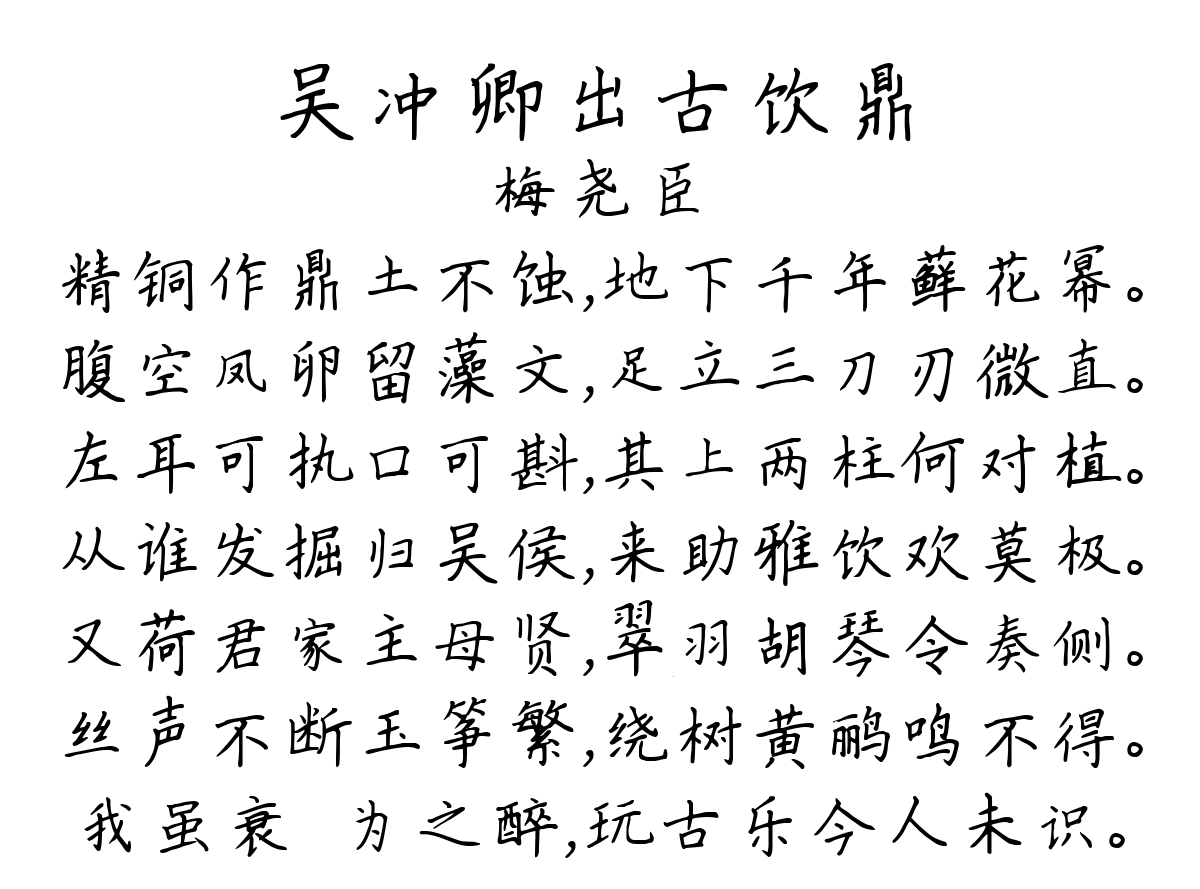 吴冲卿出古饮鼎
梅尧臣
精铜作鼎土不蚀,地下千年藓花幂。
腹空凤卵留藻文,足立三刀刃微直。
左耳可执口可斟,其上两柱何对植。
从谁发掘归吴侯,来助雅饮欢莫极。
又荷君家主母贤,翠羽胡琴令奏侧。
丝声不断玉筝繁,绕树黄鹂鸣不得。
我虽衰 为之醉,玩古乐今人未识。